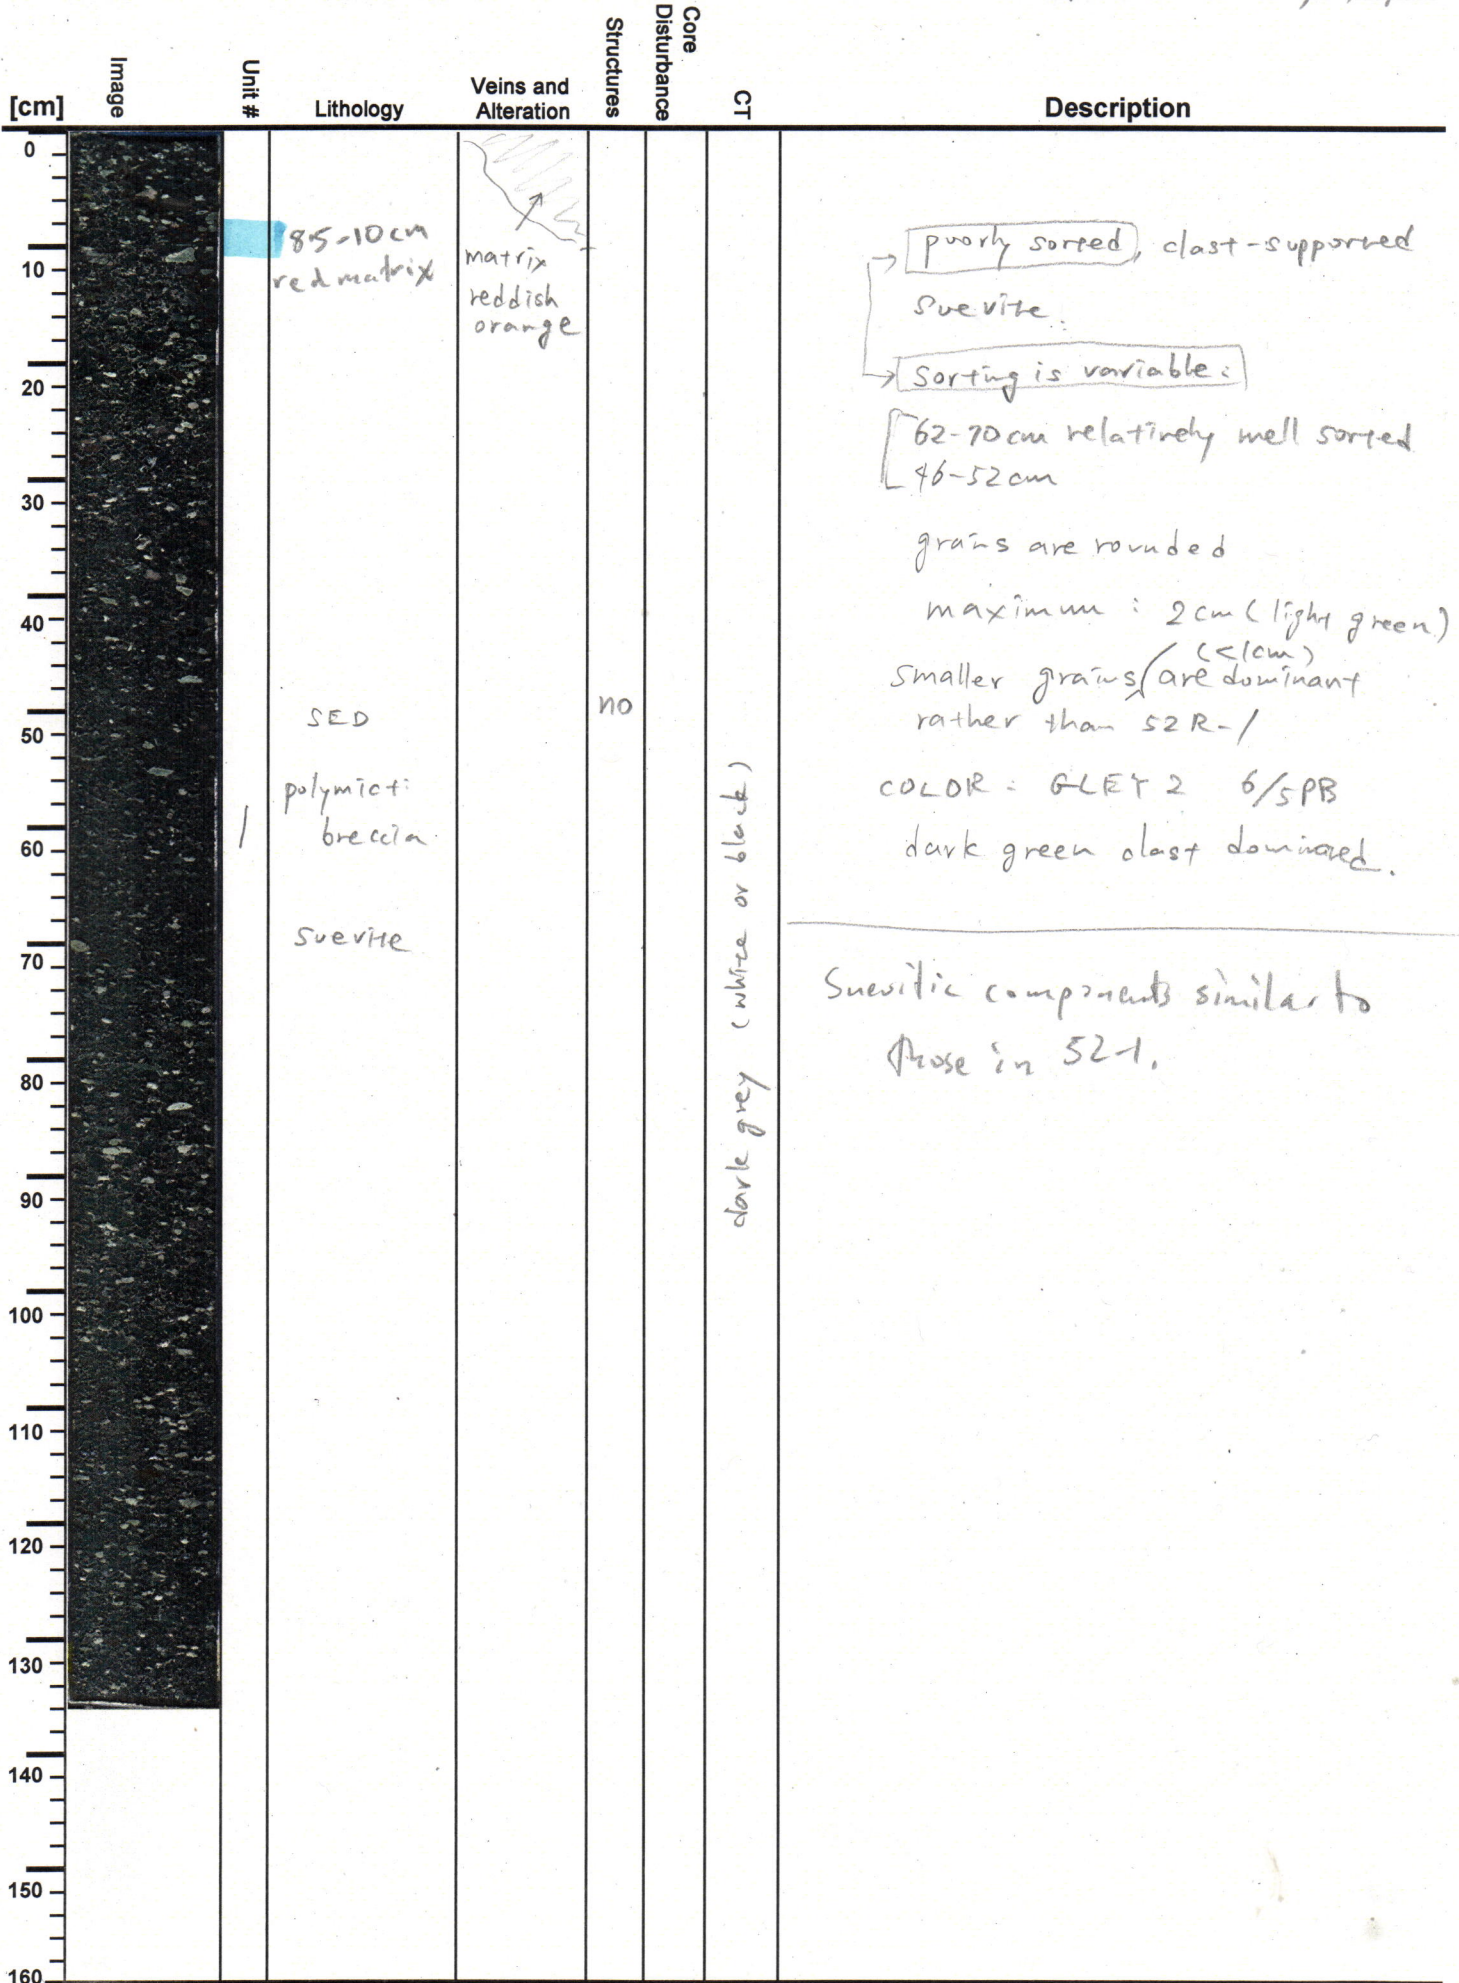 [cm]
Image
Unit #
Lithology
Veins and
Alteration
Structures
Core
Disturbance
CT
Description
0
10
20
30
40
50
60
70
80
90
100
110
120
130
140
150
160
8.5-10cm
red matrix
SED
polymict:
breccia
suevite
1
matrix
reddish
orange
no
dark grey (white or black)
poorly sorted, clast-supported
suevite.
Sorting is variable:
62-70cm relatively well sorted
46-52cm
grains are rounded
maximum : 2cm (light green)
(<1cm)
smaller grains are dominant
rather than 52R-1
COLOR : GLEY 2 6/5PB
dark green clast dominated.
Suevitic components similar to
those in 52-1.